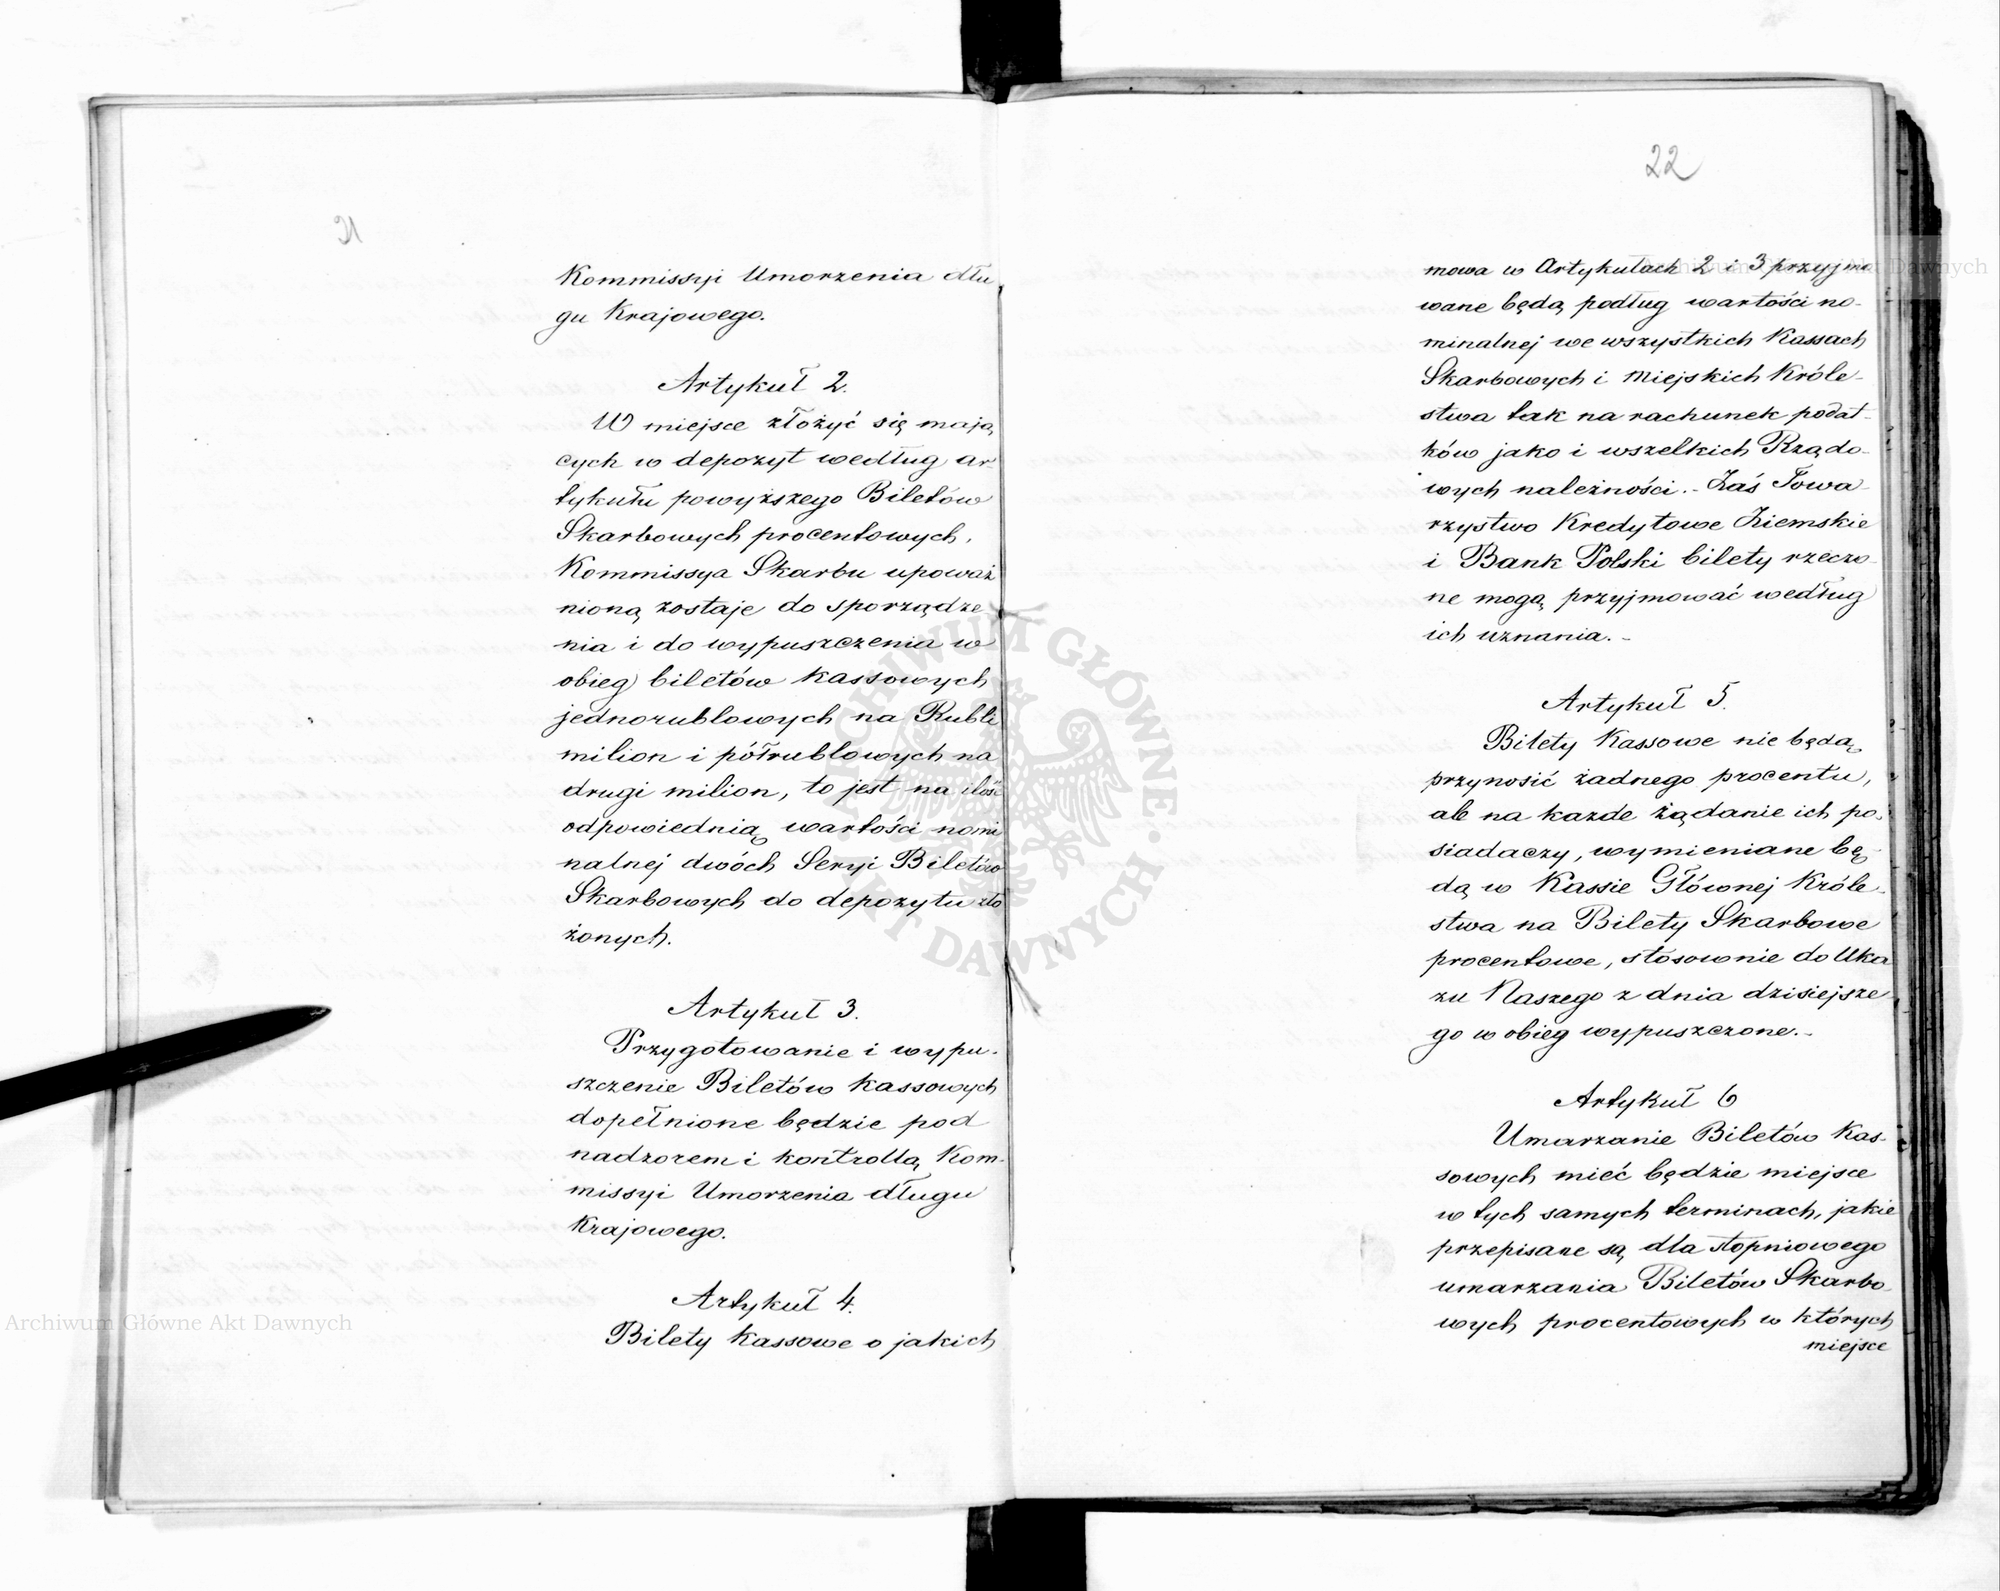 21
Kommissyi Umorzenia dłu
gu Krajowego.
Artykuł 2.
W miejsce złożyć się mają
cych w depozyt według ar
tykułu powyższego Biletów
Skarbowych procentowych,
Kommissya Skarbu upoważ
nioną zostaje do sporządze
nia i do wypuszczenia w
obieg biletów kassowych
jednorublowych na Rubli
milion i półrublowych na
drugi milion, to jest na ilość
odpowiednią wartości nomi
nalnej dwóch Seryi Biletów
Skarbowych do depozytu zło
żonych.
Artykuł 3.
Przygotowanie i wypu-
szczenie Biletów kassowych
dopełnione będzie pod
nadzorem i kontrollą Kom-
missyi Umorzenia długu
Krajowego.
Artykuł 4.
Bilety kassowe o jakich
22
mowa w Artykułach 2 i 3 przyjmo
wane będą podług wartości no-
minalnej we wszystkich Kassach
Skarbowych i Miejskich Króle-
stwa tak na rachunek podat-
ków jako i wszelkich Rządo-
wych należności.- Zaś Towa-
rzystwo Kredytowe Ziemskie
i Bank Polski bilety rzeczo-
ne mogą przyjmować według
ich uznania.-
Artykuł 5.
Bilety Kassowe nie będą
przynosić żadnego procentu,
ale na każde żądanie ich po-
siadaczy, wymieniane bę-
dą w Kassie Głównej Króle-
stwa na Bilety Skarbowe
procentowe, stosownie do Uka
zu Naszego z dnia dzisiejsze
go w obieg wypuszczone.-
Artykuł 6
Umarzanie Biletów Kas-
sowych mieć będzie miejsce
w tych samych terminach, jakie
przepisane są dla stopniowego
umarzania Biletów Skarbo-
wych procentowych w których
miejsce
ARCHIWUM GŁÓWNE AKT DAWNYCH
Archiwum Główne Akt Dawnych
Archiwum Główne Akt Dawnych